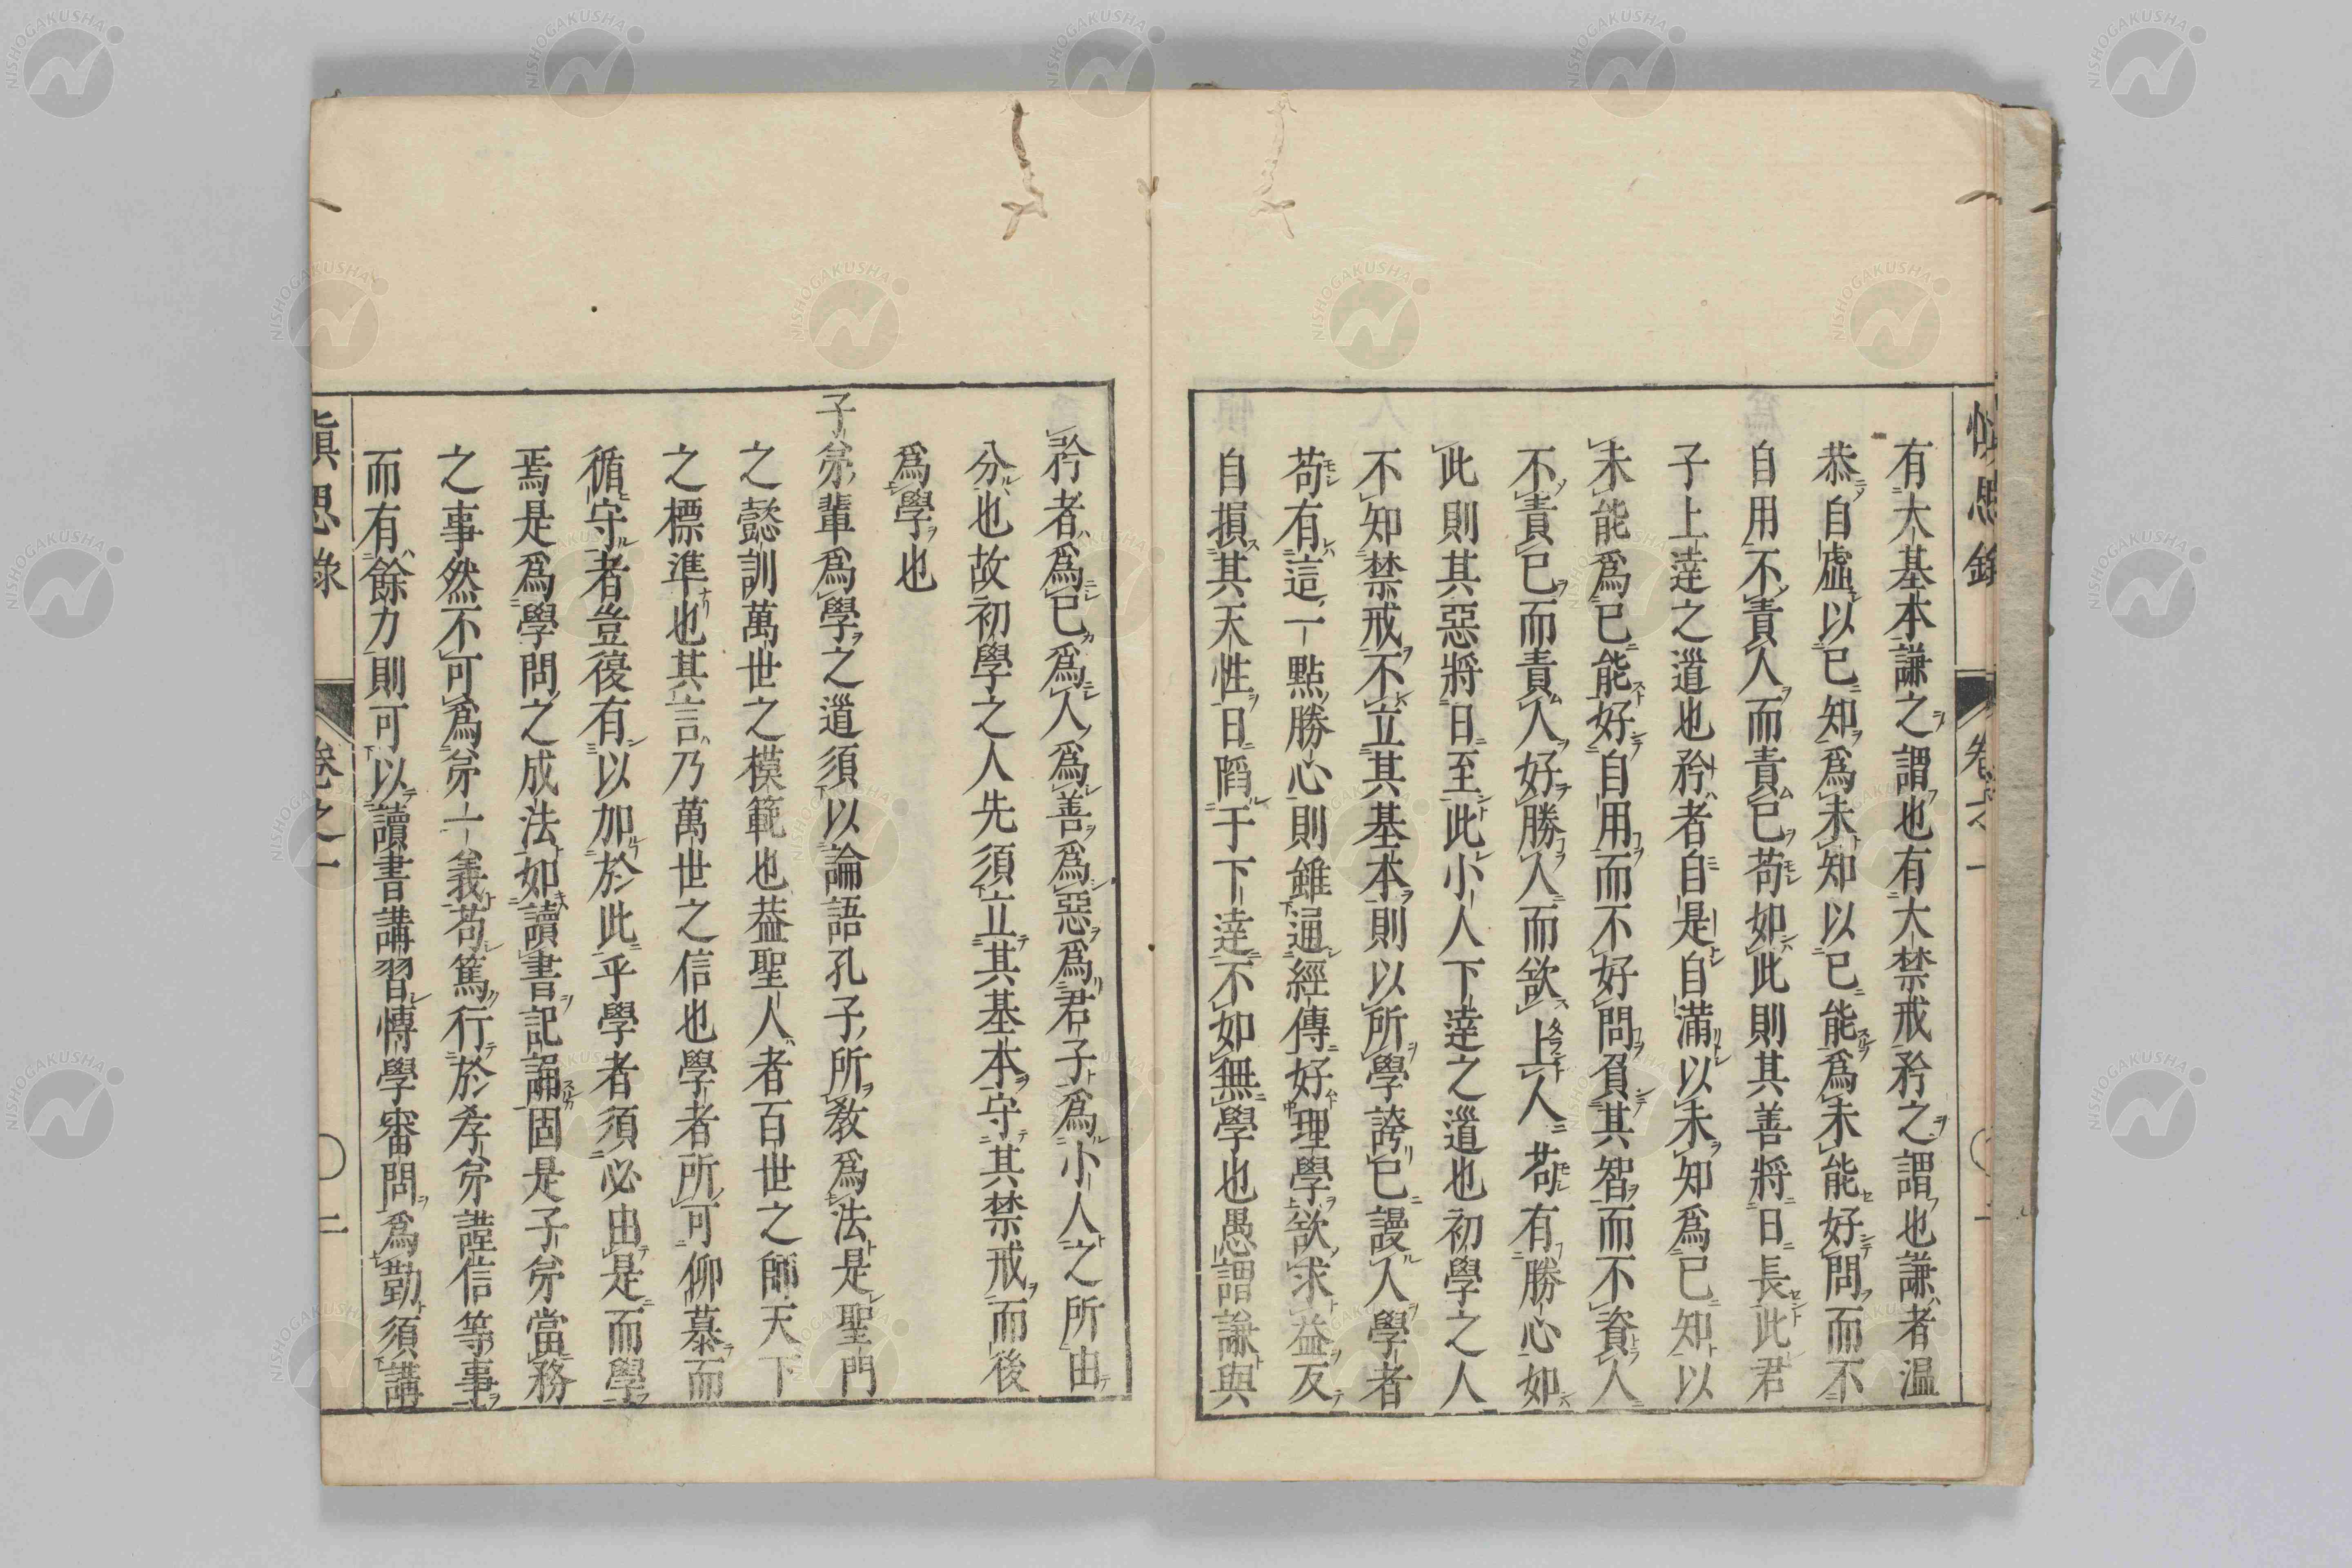 有大基本謙之謂也有大禁戒矜之謂也謙者溫
恭自虛以己知爲未知以己能爲未能好問而不
自用不責人而責己苟如此則其善將日長此君
子上達之道也矜者自是自滿以未知爲己知以
未能爲己能好自用而不好問負其智而不資人
不責己而責人好勝人而欲上人苟有勝心如
此則其惡將日至此小人下達之道也初學之人
不知禁戒不立其基本則以所學誇己謾人學者
苟有這一點勝心則雖通經傳好理學欲求益友
自損其天性日陷于下達不如無學也愚謂謙與
矜者爲己爲人爲善爲惡爲君子爲小人之所由
分也故初學之人先須立其基本守其禁戒而後
爲學也
子弟輩爲學之道須以論語孔子所敎爲法是聖門
之懿訓萬世之模範也葢聖人者百世之師天下
之標準也其言乃萬世之信也學者所可仰慕而
循守者豈復有以加於此乎學者須必由是而學
焉是爲學問之成法如讀書記誦固是子弟當務
之事然不可爲第一義苟篤行於孝弟謹信等事
而有餘力則可以讀書講習博學審問爲勤須講
愼思錄 卷之一 〇二
NISHOGAKUSHA